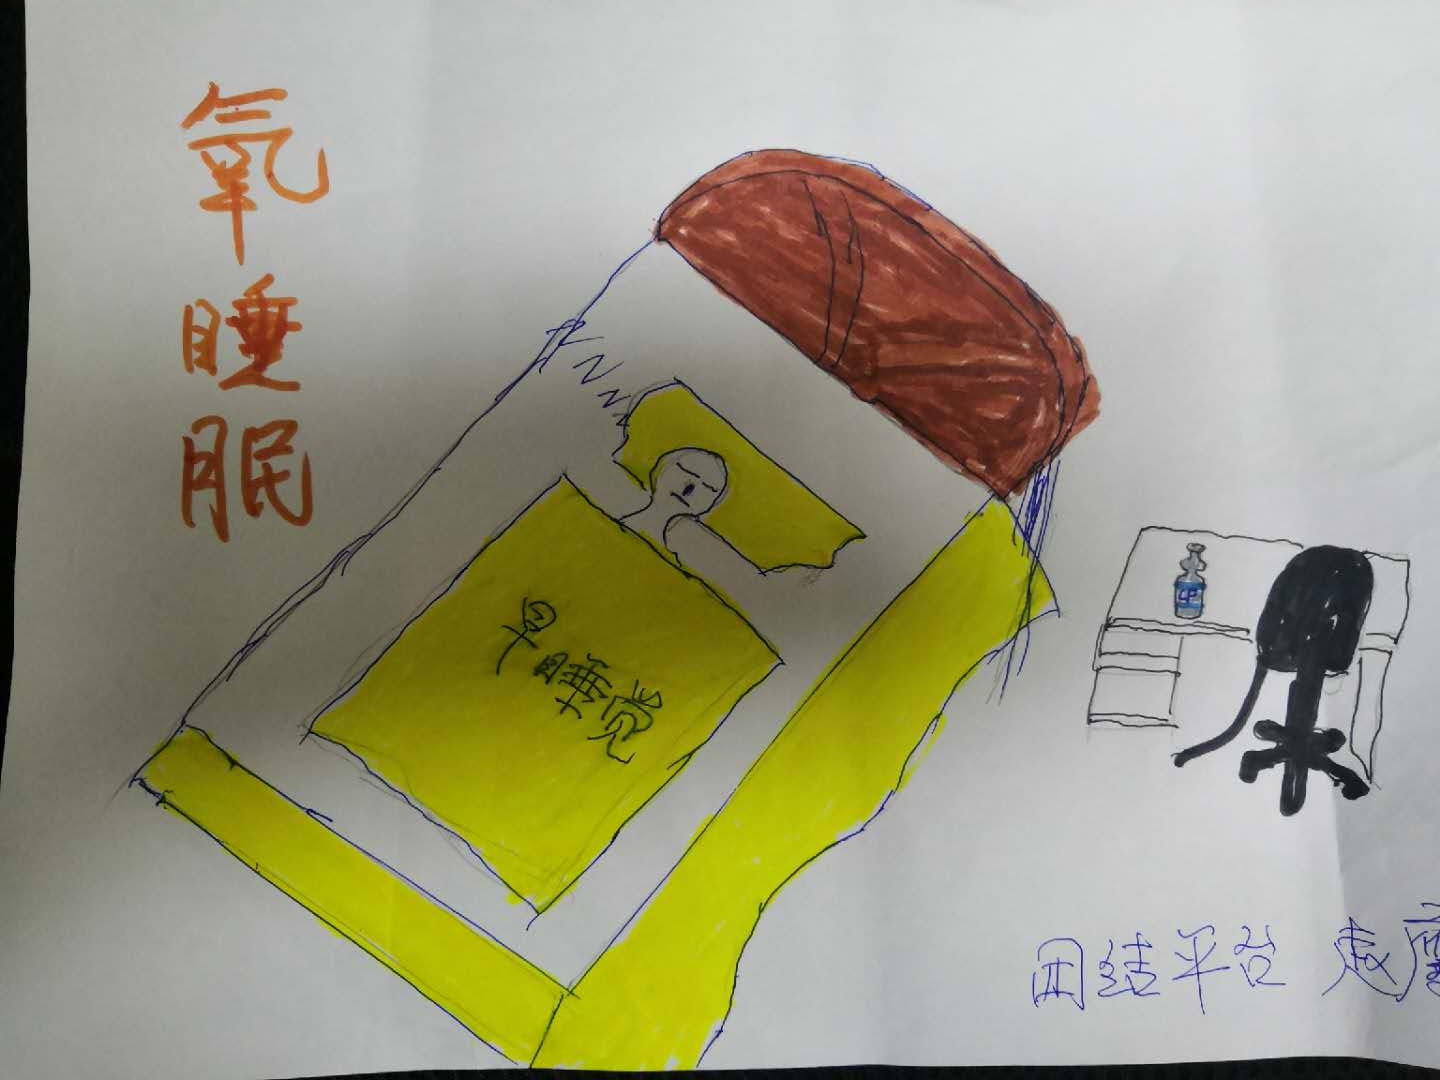 氧睡眠
早睡觉
团结平台